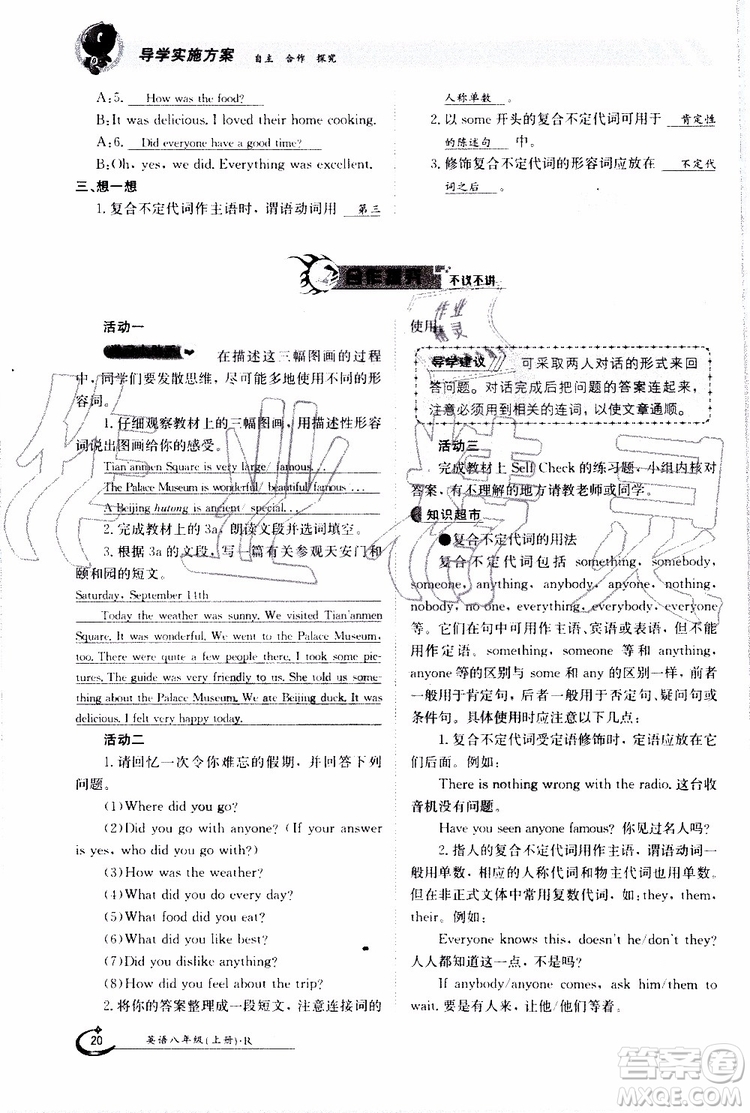 导学实施方案 自主 合作 探究
A:5. How was the food?
B:It was delicious. I loved their home cooking.
A:6. Did everyone have a good time?
B:Oh, yes, we did. Everything was excellent.
三、想一想
1.复合不定代词作主语时,谓语动词用 第三
人称单数 。
2. 以 some 开头的复合不定代词可用于 肯定性
的陈述句 中。
3. 修饰复合不定代词的形容词应放在 不定代
词之后 。
合作探究 不议不讲
活动一
在描述这三幅图画的过程
中,同学们要发散思维,尽可能多地使用不同的形
容词。
1.仔细观察教材上的三幅图画,用描述性形容
词说出图画给你的感受。
Tian'anmen Square is very large/ famous...
The Palace Museum is wonderful/ beautiful/ famous...
A Beijing hutong is ancient/ special...
2.完成教材上的 3a,朗读文段并选词填空。
3.根据 3a 的文段,写一篇有关参观天安门和
颐和园的短文。
Saturday, September 14th
Today the weather was sunny. We visited Tian'anmen
Square. It was wonderful. We went to the Palace Museum,
too. There were quite a few people there. I took some pic-
tures. The guide was very friendly to us. She told us some-
thing about the Palace Museum. We ate Beijing duck. It was
delicious. I felt very happy today.
活动二
1.请回忆一次令你难忘的假期,并回答下列
问题。
(1)Where did you go?
(2)Did you go with anyone?(If your answer
is yes, who did you go with?)
(3)How was the weather?
(4)What did you do every day?
(5)What food did you eat?
(6)What did you like best?
(7)Did you dislike anything?
(8)How did you feel about the trip?
2.将你的答案整理成一段短文,注意连接词的
使用。
导学建议 可采取两人对话的形式来回
答问题。对话完成后把问题的答案连起来,
注意必须用到相关的连词,以使文章通顺。
活动三
完成教材上 Self Check 的练习题,小组内核对
答案,有不理解的地方请教老师或同学。
知识超市
●复合不定代词的用法
复合不定代词包括 something, somebody,
someone, anything, anybody, anyone, nothing,
nobody, no one, everything, everybody, everyone
等。它们在句中可用作主语、宾语或表语,但不能
用作定语。something, someone 等和 anything,
anyone 等的区别与 some 和 any 的区别一样,前者
一般用于肯定句,后者一般用于否定句、疑问句或
条件句。具体使用时应注意以下几点:
1.复合不定代词受定语修饰时,定语应放在
它们后面。例如:
There is nothing wrong with the radio. 这台收
音机没有问题。
Have you seen anyone famous? 你见过名人吗?
2.指人的复合不定代词用作主语,谓语动词一
般用单数,相应的人称代词和物主代词也用单数。
但在非正式文体中常用复数代词,如:they, them,
their。例如:
Everyone knows this, doesn't he/don't they?
人人都知道这一点,不是吗?
If anybody/anyone comes, ask him/them to
wait. 要是有人来,让他/他们等着。
20 英语八年级(上册)·R
作业精灵
作业精灵
答案圈
MXQE.COM